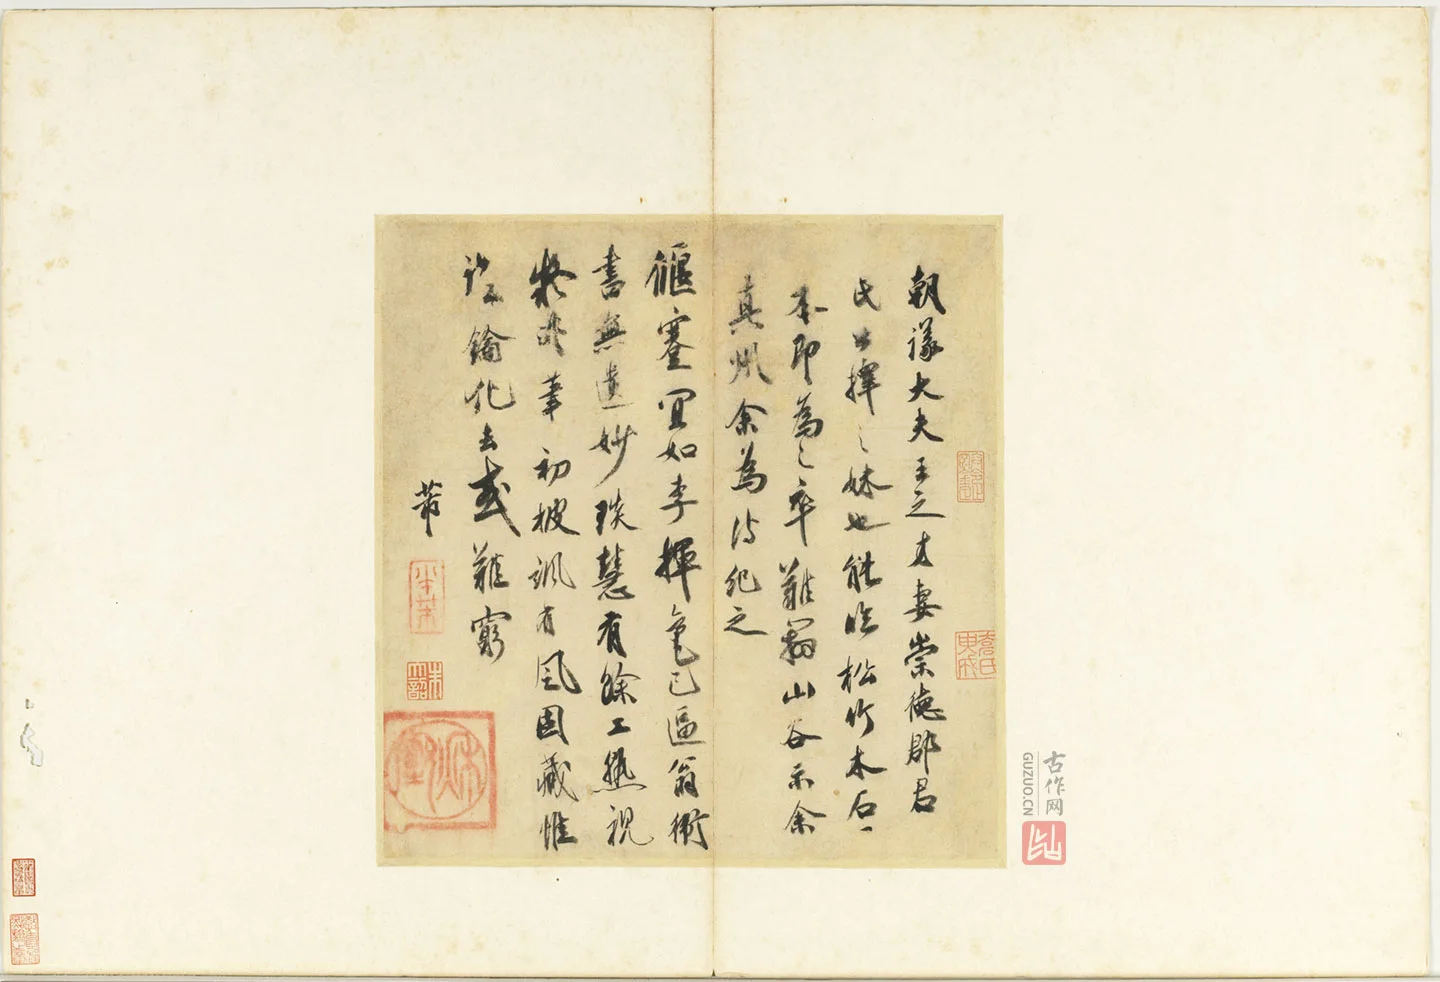 朝議大夫王之才妻崇德郡君
氏公擇之妹也能臨松竹木石
本即為之卒難辨山谷示余
真州余為詩紀之
偃蹇宜如李揮毫已逼翁衛
書無遺妙琰慧有餘工熟視
疑非筆初披颯有風固藏惟
謹鑰化去或難窮
芾
古作网
GUZUO.CN